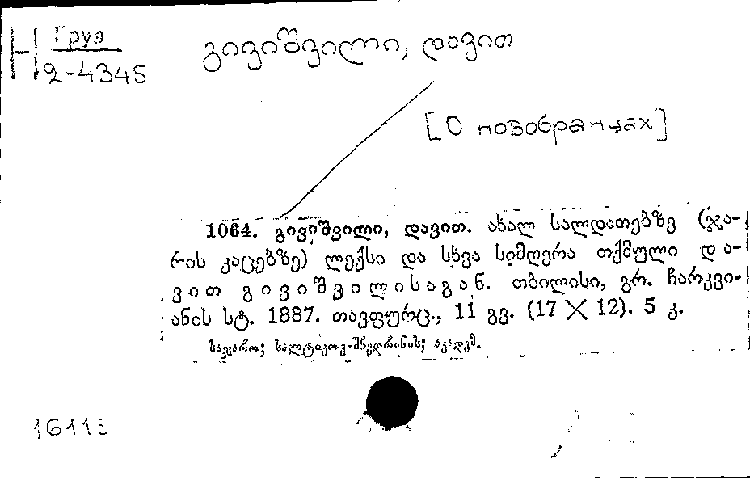 Н Груз
2-4345
გივიშვილი, დავით
[О новобранцах]
1064. გივიშვილი, დავით. ახალ სალდათებზე (ჯა-
რის კაცებზე) ლექსი და სხვა სიმღერა თქმული და-
ვით გივიშვილისაგან. თბილისი, გრ. ჩარკვი-
ანის სტ. 1887. თავფურც., 11 გვ. (17 × 12). 5 კ.
საჯარო; სალტიკოვ-შჩედრინის; აკადემ.